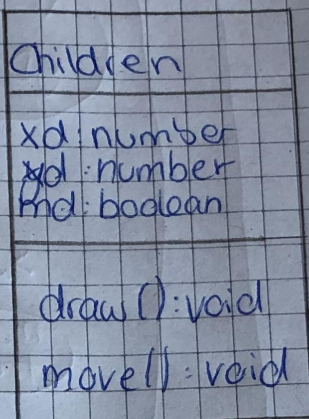 Children
xd: number
yd: number
md: boolean
draw(): void
move(): void